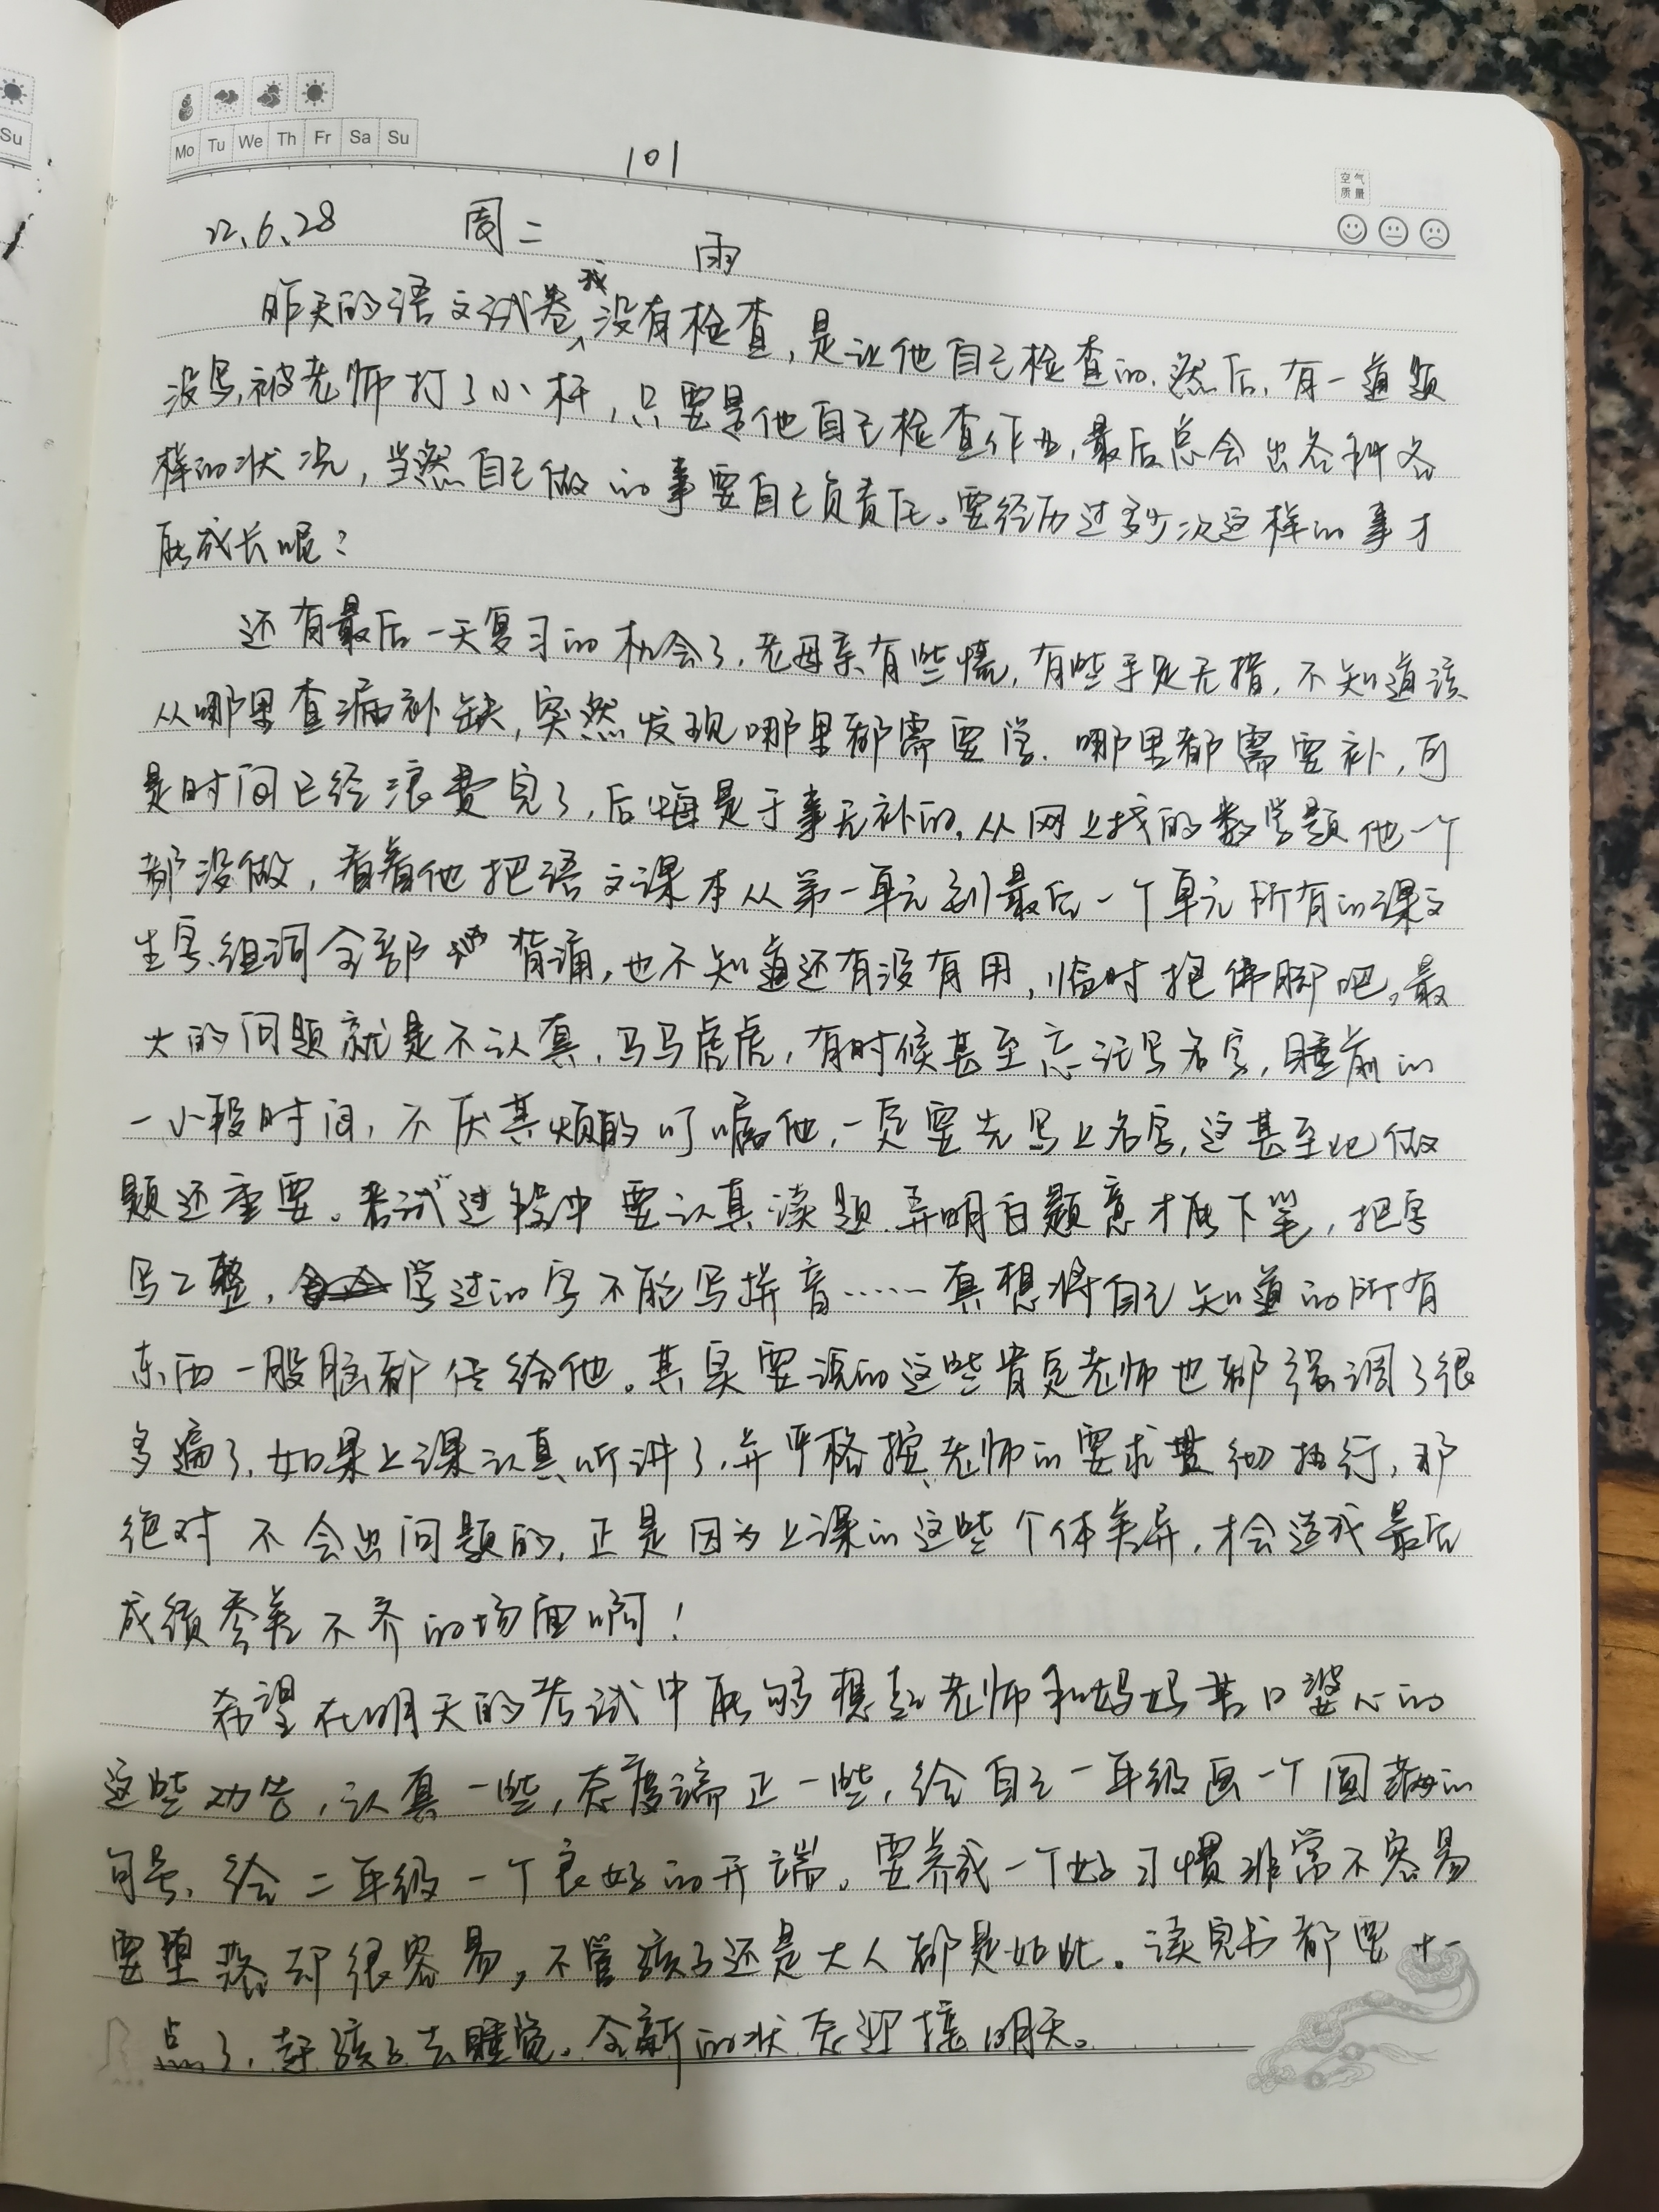 Su
Mo Tu We Th Fr Sa Su
101
空气
质量
22.6.28 周二 雨
昨天的语文试卷我没有检查,是让他自己检查的.然后,有一道题
没写,被老师打了小杆,只要是他自己检查作业,最后总会出各种各
样的状况,当然自己做的事要自己负责任。要经历过多少次这样的事才
能成长呢?
还有最后一天复习的机会了,老母亲有些慌,有些手足无措,不知道该
从哪里查漏补缺,突然发现哪里都需要学.哪里都需要补,可
是时间已经浪费完了,后悔是于事无补的.从网上找的数学题他一个
都没做,看着他把语文课本从第一单元到最后一个单元所有的课文
生字、组词全部 背诵,也不知道还有没有用,临时抱佛脚吧。最
大的问题就是不认真,马马虎虎,有时候甚至忘记写名字,睡前的
一小段时间,不厌其烦的叮嘱他,一定要先写上名字,这甚至比做
题还重要。考试过程中要认真读题.弄明白题意才能下笔,把字
写工整, 学过的字不能写拼音……真想将自己知道的所有
东西一股脑都传给他。其实要说的这些肯定老师也都强调了很
多遍了,如果上课认真听讲了,并严格按老师的要求贯彻执行,那
绝对不会出问题的,正是因为上课的这些个体差异,才会造成最后
成绩参差不齐的场面啊!
希望在明天的考试中能够想起老师和妈妈苦口婆心的
这些劝告,认真一些,态度端正一些,给自己一年级画一个圆满的
句号、给二年级一个良好的开端。要养成一个好习惯非常不容易
要堕落却很容易,不管孩子还是大人都是如此。读完书都要十一
点了,赶孩子去睡觉。全新的状态迎接明天。